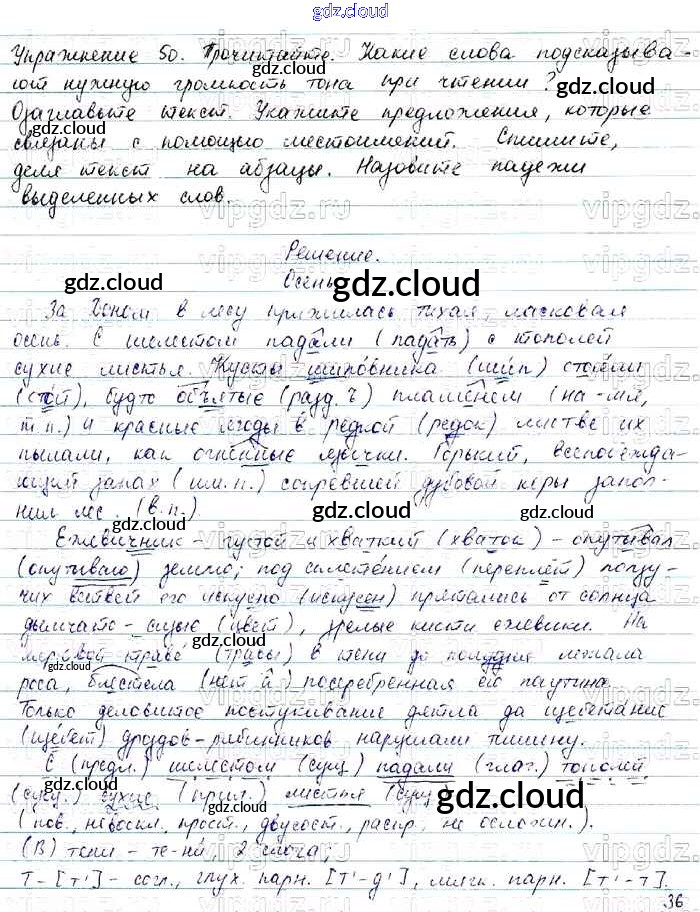 gdz.cloud
Упражнение 50. Прочитайте. Какие слова подсказыва-
ют нужную громкость тона при чтении?
Озаглавьте текст. Укажите предложения, которые
связаны с помощью местоимений. Спишите,
деля текст на абзацы. Назовите падежи
выделенных слов.
Решение.
Осень
За Доном в лесу прижилась тихая, ласковая
осень. С шелестом падали (падать) с тополей
сухие листья. Кусты шиповника (шип) стояли
(стой), будто объятые (разд. ъ) пламенем (на -мя,
т.п.) и красные ягоды в редкой (редок) листве их
пылали, как огненные язычки. Горький, всепобежда-
ющий запах (им.п.) сопревшей дубовой коры запол-
нил лес. (в.п.)
Ежевичник - густой и хваткий (хваток) - опутывал
(опутываю) землю; под сплетением (переплёт) ползу-
чих ветвей его искусно (искусен) прятались от солнца
дымчато-сизые (цвет), зрелые кисти ежевики. На
мертвой траве (травы) в тени до полудня лежала
роса, блестела посеребренная ею паутина.
Только деловитое постукивание дятла да щебетание
(щебет) дроздов-рябинников нарушали тишину.
С (предл.) шелестом (сущ) падали (глаг.) тополей
(сущ.) сухие (прил.) листья (сущ)
(пов., невоскл, прост., двусост., распр, не осложн.).
(В) тени - те-ни, 2 слога;
т - [т'] - согл., глух. парн. [т'-д'], мягк. парн. [т'-т].
36